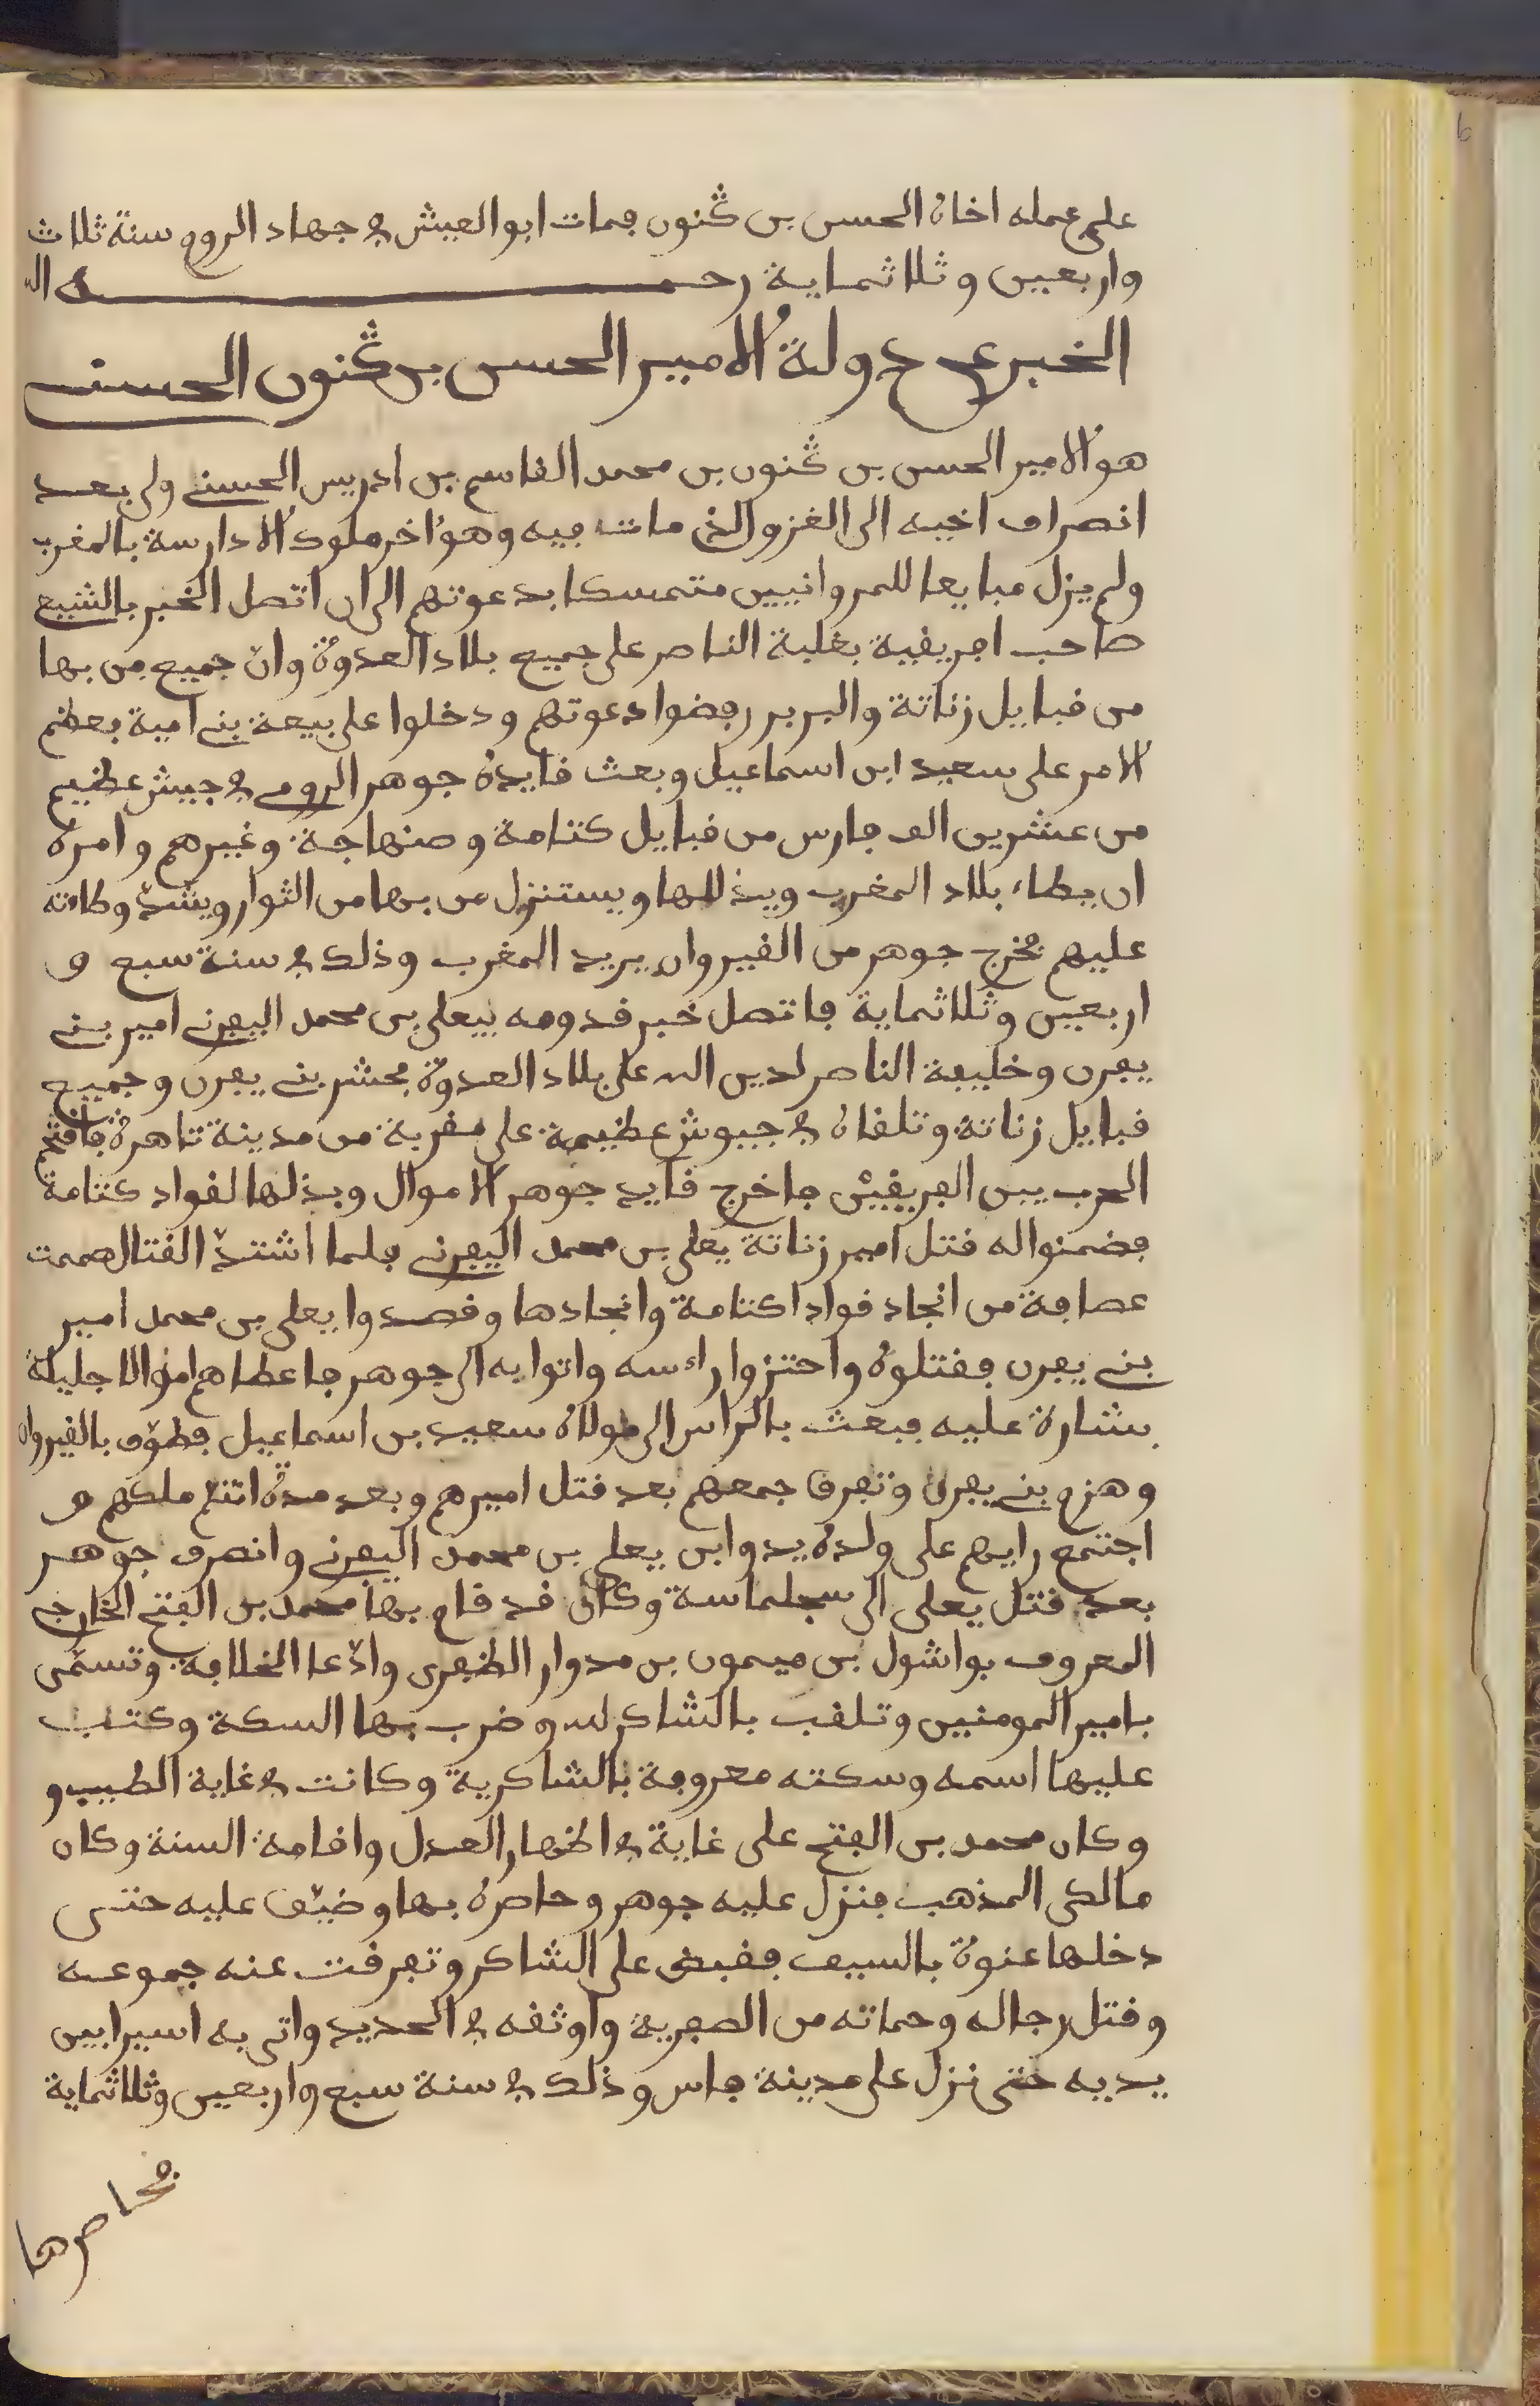 على عمله اخاه الحسن بن ڭنون فمات ابو العيش في جهاد الروم سنة ثلاث
واربعين وثلاثماية رحمه الله
الخبر عن دولة الامير الحسن بن ڭنون الحسني
هو الامير الحسن بن ڭنون بن محمد القاسم بن ادريس الحسني ولي بعد
انصراف اخيه الى الغزو الذي مات فيه وهو اخر ملوك الادارسة بالمغرب
ولم يزل مبايعا للمروانيين متمسكا بدعوتهم الى ان اتصل الخبر بالشيع
صاحب افريقية بغلبة الناصر على جميع بلاد العدوة وان جميع من بها
من قبايل زناتة والبربر رفضوا دعوتهم ودخلوا على بيعة بني امية بعظم
الامر على سعيد ابن اسماعيل وبعث قايده جوهر الرومي في جيش عظيم
من عشرين الف فارس من قبايل كتامة وصنهاجة وغيرهم وامره
ان يطاء بلاد المغرب ويذللها ويستنزل من بها من الثوار ويشدّ وطاءته
عليهم فخرج جوهر من القيروان يريد المغرب وذلك في سنة سبع و
اربعين وثلاثماية فاتصل خبر قدومه بيعلى بن محمد اليفرني امير بني
يفرن وخليفة الناصر لدين الله على بلاد العدوة فحشر بني يفرن وجميع
قبايل زناتة وتلقاه في جيوش عظيمة على مقربة من مدينة تاهرة فالتحم
الحرب بين الفريقين فاخرج قايد جوهر الاموال وبذلها لقواد كتامة
فضمنوا له قتل امير زناتة يعلى بن محمد اليفرني فلما اشتدّ القتال صممت
عصافة من انجاد قوادا كتامة وانجادها وقصدوا يعلى بن محمد امير
بني يفرن فقتلوه واحتزوا راءسه واتوا به الى جوهر فاعطاهم اموالا جليلة
بشارة عليه فبعث بالراس الى مولاه سعيد بن اسماعيل فطوّف بالقيروان
وهزم بني يفرن وتفرق جمعهم بعد قتل اميرهم وبعد مدة التئم ملكهم و
اجتمع رايهم على ولده يدوا بن يعلى بن محمد اليفرني وانصرف جوهر
بعد قتل يعلى الى سجلماسة وكان قد قام بها محمد بن الفتح الخارجي
المعروف بواشول بن ميمون بن مدوار الظفرى وادّعا الخلافة وتسمّى
بامير المومنين وتلقب بالشاكر لله وضرب بها السكة وكتب
عليها اسمه وسكته معروفة بالشاكرية وكانت في غاية الطيب و
وكان محمد بن الفتح على غاية في اظهار العدل واقامة السنة وكان
مالكى المذهب فنزل عليه جوهر وحاصره بها وضيّق عليه حتى
دخلها عنوة بالسيف فقبض على الشاكر وتفرقت عنه جموعه
وقتل رجاله وحماته من الصفرية واوثقه في الحديد واتى به اسيرا بين
يديه حتى نزل على مدينة فاس وذلك في سنة سبع واربعين وثلاثماية
فحاصرها